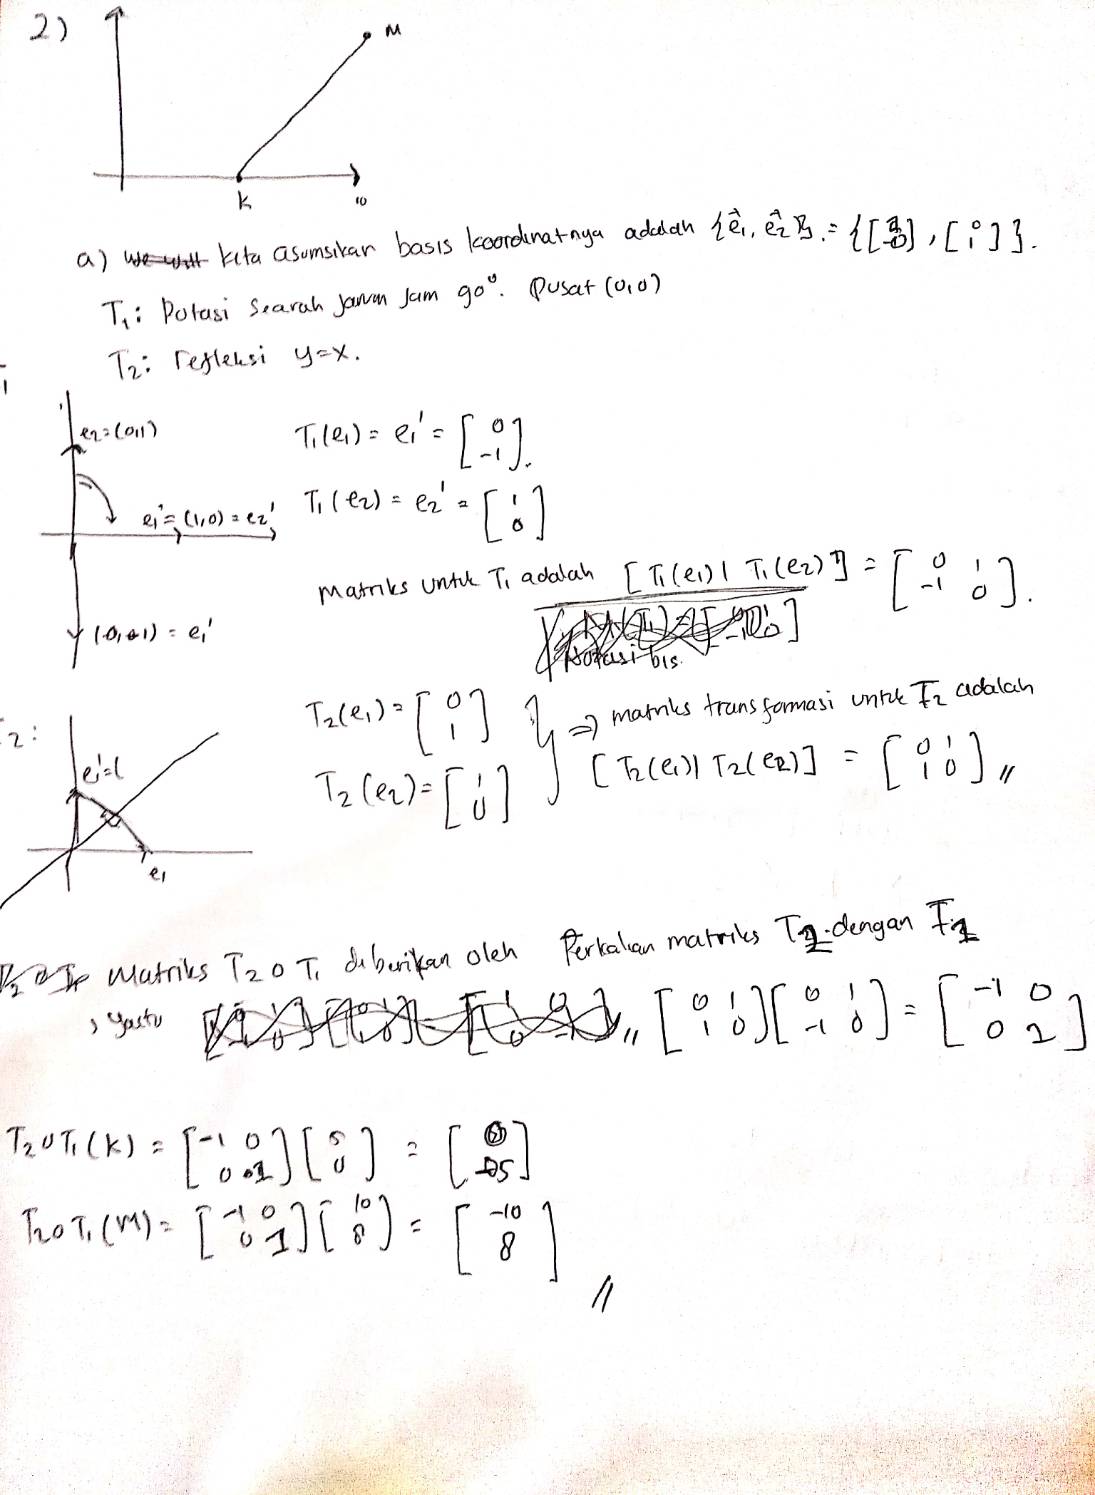 2)
M
K
10
a) kita asumsikan basis koordinatnya adalah {ê₁, ê₂}. = {[1 0], [0 1]}.
T₁: Rotasi searah jarum jam 90°. Pusat (0,0)
T₂: refleksi y=x.
e₂=(0,1)
T₁(e₁) = e₁' = [0 -1].
e₁=(1,0)=e₂'
T₁(e₂) = e₂' = [1 0]
matriks untuk T₁ adalah [T₁(e₁) | T₁(e₂)] = [0 1 -1 0].
(0,-1) = e₁'
2:
T₂(e₁) = [0 1]
T₂(e₂) = [1 0]
} => matriks transformasi untuk T₂ adalah
[T₂(e₁) | T₂(e₂)] = [0 1 1 0] //
e₁'=(
e₁
Matriks T₂ o T₁ diberikan oleh Perkalian matriks T₂ dengan T₁
, yaitu [0 1 1 0][0 1 -1 0] = [-1 0 0 1]
T₂ o T₁(K) = [-1 0 0 1][5 0] =
T₂ o T₁(M) = [-1 0 0 1][10 8] = [-10 8] //